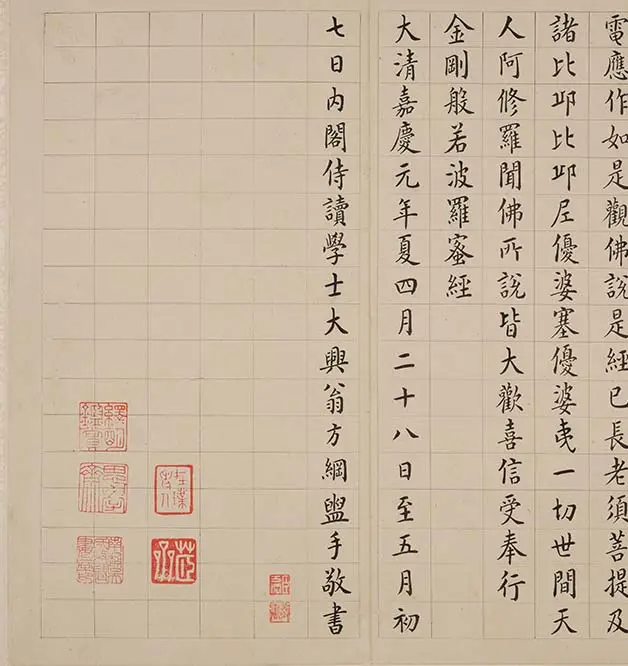 電應作如是觀佛說是經已長老須菩提及
諸比邱比邱尼優婆塞優婆夷一切世間天
人阿修羅聞佛所說皆大歡喜信受奉行
金剛般若波羅蜜經
大清嘉慶元年夏四月二十八日至五月初
七日內閣侍讀學士大興翁方綱盥手敬書